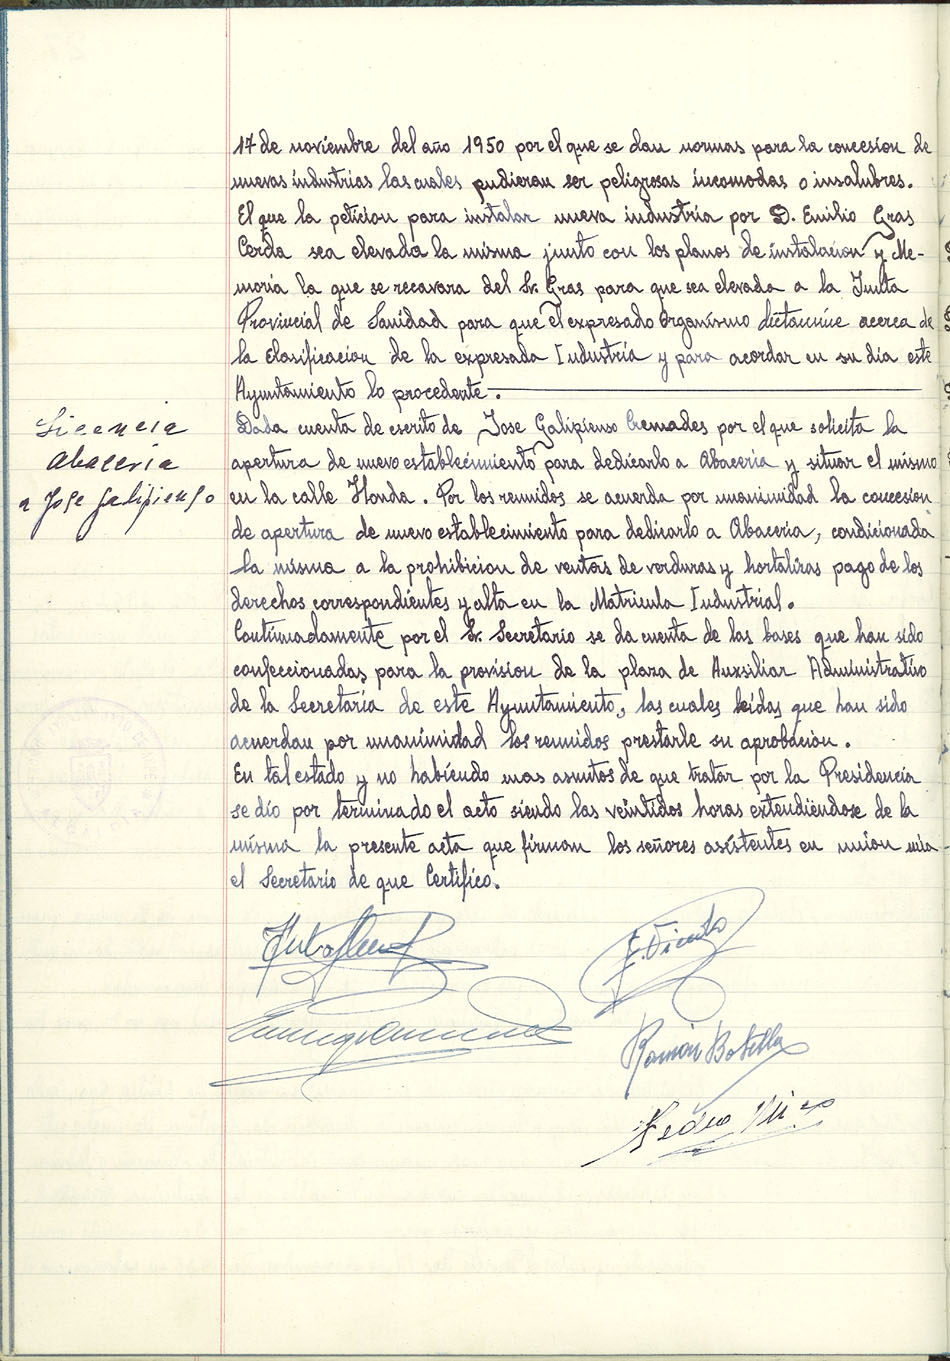 17 de noviembre del año 1950 por el que se dan normas para la concesion de
nuevas industrias las cuales pudieran ser peligrosas incomodas o insalubres.
El que la peticion para instalar nueva industria por D. Emilio Gras
Cerda sea elevada la misma junto con los planos de instalacion y Me-
moria la que se recavara del Sr. Gras para que sea elevada a la Junta
Provincial de Sanidad para que el expresado Organismo dictamine acerca de
la clasificacion de la expresada Industria y para acordar en su dia este
Ayuntamiento lo procedente.
Licencia
Abaceria
a Jose Galipienso
Dada cuenta de escrito de Jose Galipienso Cremades por el que solicita la
apertura de nuevo establecimiento para dedicarlo a Abaceria y situar el mismo
en la calle Honda. Por los reunidos se acuerda por unanimidad la concesion
de apertura de nuevo establecimiento para dedicarlo a Abaceria, condicionada
la misma a la prohibicion de ventas de verduras y hortalizas pago de los
derechos correspondientes y alta en la Matricula Industrial.
Continuadamente por el Sr. Secretario se da cuenta de las bases que han sido
confeccionadas para la provision de la plaza de Auxsiliar Administrativo
de la Secretaria de este Ayuntamiento, las cuales leidas que han sido
acuerdan por unanimidad los reunidos prestarle su aprobacion.
En tal estado y no habiendo mas asuntos de que tratar por la Presidencia
se dio por terminado el acto siendo las veintidos horas extendiéndose de la
misma la presente acta que firman los señores asistentes en union mia
el Secretario de que Certifico.
F. Vicente
Ramón Botella
Pedro